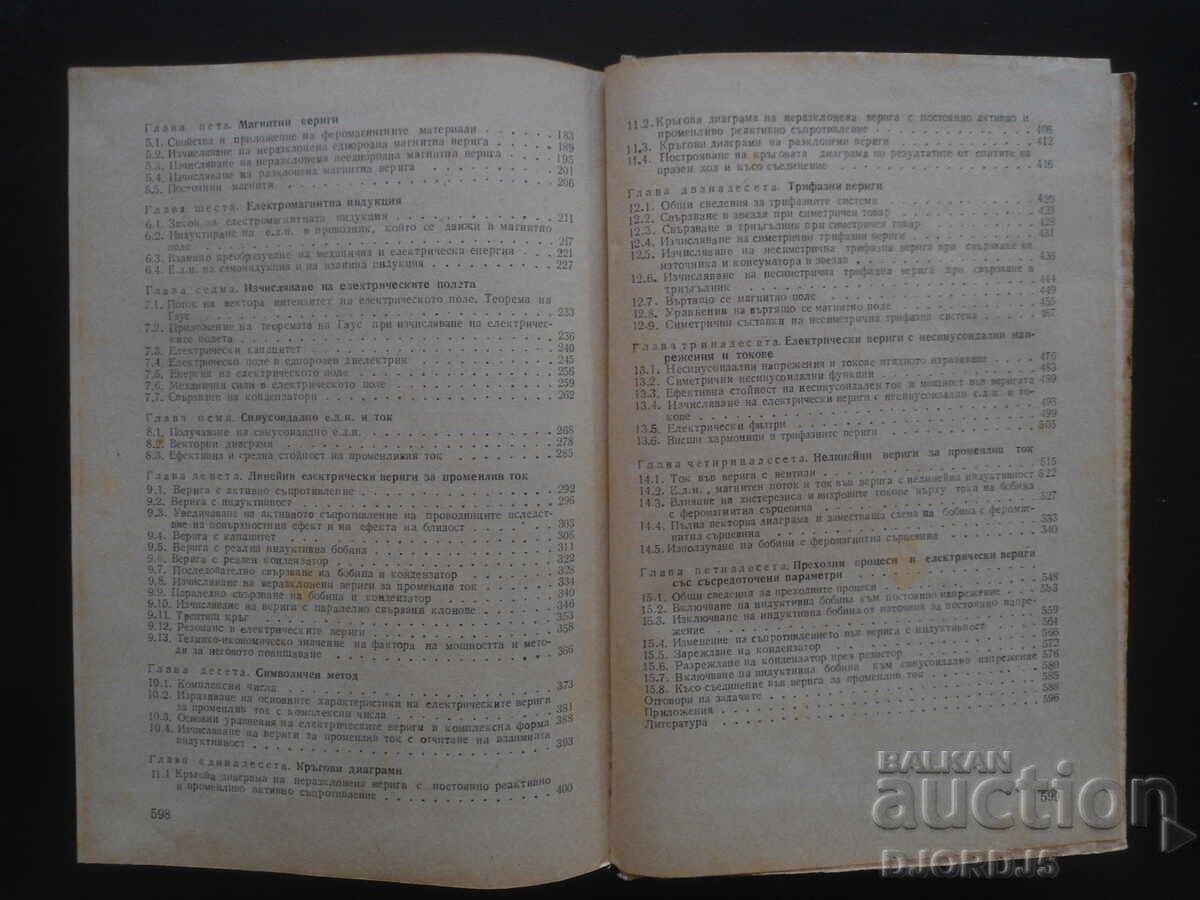 Глава пета. Магнитни вериги
5.1. Свойства и приложение на феромагнитните материали 183
5.2. Изчисляване на неразклонена еднородна магнитна верига 189
5.3. Изчисляване на неразклонена нееднородна магнитна верига 195
5.4. Изчисляване на разклонена магнитна верига 201
5.5. Постоянни магнити 206
Глава шеста. Електромагнитна индукция
6.1. Закон за електромагнитната индукция 211
6.2. Индуктиране на е.д.н. в проводник, който се движи в магнитно
поле 217
6.3. Взаимно преобразуване на механична и електрическа енергия 221
6.4. Е.д.н. на самоиндукция и на взаимна индукция 227
Глава седма. Изчисляване на електрическите полета
7.1. Поток на вектора интензитет на електрическото поле. Теорема на
Гаус 233
7.2. Приложение на теоремата на Гаус при изчисляване на електричес-
ките полета 236
7.3. Електрически капацитет 240
7.4. Електрическо поле в еднороден диелектрик 245
7.5. Енергия на електрическото поле 256
7.6. Механични сили в електрическото поле 259
7.7. Свързване на кондензатори 262
Глава осма. Синусоидално е.д.н. и ток
8.1. Получаване на синусоидално е.д.н. 268
8.2. Векторни диаграми 278
8.3. Ефективна и средна стойност на променливия ток 285
Глава девета. Линейни електрически вериги за променлив ток
9.1. Верига с активно съпротивление 292
9.2. Верига с индуктивност 296
9.3. Увеличаване на активното съпротивление на проводниците вследст-
вие на повърхностния ефект и на ефекта на близост 303
9.4. Верига с капацитет 306
9.5. Верига с реална индуктивна бобина 311
9.6. Верига с реален кондензатор 322
9.7. Последователно свързване на бобина и кондензатор 328
9.8. Изчисляване на неразклонени вериги за променлив ток 334
9.9. Паралелно свързване на бобина и кондензатор 340
9.10. Изчисляване на вериги с паралелно свързани клонове 346
9.11. Трептящ кръг 353
9.12. Резонанс в електрическите вериги 358
9.13. Технико-икономическо значение на фактора на мощността и мето-
ди за неговото повишаване 366
Глава десета. Символичен метод
10.1. Комплексни числа 373
10.2. Изразяване на основните характеристики на електрическите вериги
за променлив ток с комплексни числа 381
10.3. Основни уравнения на електрическите вериги в комплексна форма 388
10.4. Изчисляване на вериги за променлив ток с отчитане на взаимната
индуктивност 393
Глава единадесета. Кръгови диаграми
11.1 Кръгова диаграма на неразклонена верига с постоянно реактивно
и променливо активно съпротивление 400
598
11.2. Кръгова диаграма на неразклонена верига с постоянно активно и
променливо реактивно съпротивление 406
11.3. Кръгови диаграми на разклонени вериги 412
11.4. Построяване на кръговата диаграма по резултатите от опитите на
празен ход и късо съединение 416
Глава дванадесета. Трифазни вериги
12.1. Общи сведения за трифазните системи
12.2. Свързване в звезда при симетричен товар
12.3. Свързване в триъгълник при симетричен товар
12.4. Изчисляване на симетрични трифазни вериги 431
12.5. Изчисляване на несиметрична трифазна верига при свързване на
източника и консуматора в звезда 436
12.6. Изчисляване на несиметрична трифазна верига при свързване в
триъгълник 444
12.7. Въртящо се магнитно поле 449
12.8. Уравнения на въртящо се магнитно поле 455
12-9. Симетрични съставки на несиметрична трифазна система 467
Глава тринадесета. Електрически вериги с несинусоидални нап-
режения и токове
13.1. Несинусоидални напрежения и токове и тяхното изразяване 476
13.2. Симетрични несинусоидални функции 483
13.3. Ефективна стойност на несинусоидален ток и мощност във веригата 489
13.4. Изчисляване на електрически вериги с несинусоидални е.д.н. и то-
кове 493
13.5. Електрически филтри 499
13.6. Висши хармоници в трифазните вериги 505
Глава четиринадесета. Нелинейни вериги за променлив ток
14.1. Ток във верига с вентили 515
14.2. Е.д.н., магнитен поток и ток във верига с нелинейна индуктивност 522
14.3. Влияние на хистерезиса и вихровите токове върху тока на бобина
с феромагнитна сърцевина 527
14.4. Пълна векторна диаграма и заместваща схема на бобина с феромаг-
нитна сърцевина 533
14.5. Използуване на бобини с феромагнитна сърцевина 540
Глава петнадесета. Преходни процеси в електрически вериги
със съсредоточени параметри
15.1. Общи сведения за преходните процеси 548
15.2. Включване на индуктивна бобина към постоянно напрежение 553
15.3. Изключване на индуктивна бобина от източник за постоянно напре-
жение 559
15.4. Изменение на съпротивлението във верига с индуктивност 564
15.5. Зареждане на кондензатор 566
15.6. Разреждане на кондензатор през резистор 572
15.7. Включване на индуктивна бобина към синусоидално напрежение 576
15.8. Късо съединение във верига за променлив ток 580
Отговори на задачите 585
Приложения 588
Литература 596
BALKAN
auction
DJORDJ5